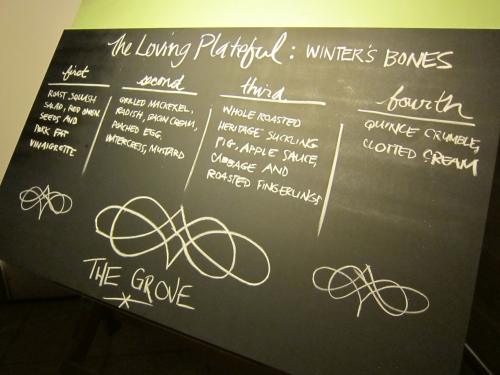 the Loving Plateful: WINTER'S BONES
first
ROAST SQUASH
SALAD, RED ONION,
SEEDS AND
PORK FAT
VINAIGRETTE
second
GRILLED MACKEREL,
RADISH, BACON CREAM,
POACHED EGG,
WATERCRESS, MUSTARD
third
WHOLE ROASTED
HERITAGE SUCKLING
PIG, APPLE SAUCE,
CABBAGE AND
ROASTED FINGERLINGS
fourth
QUINCE CRUMBLE,
CLOTTED CREAM
THE GROVE